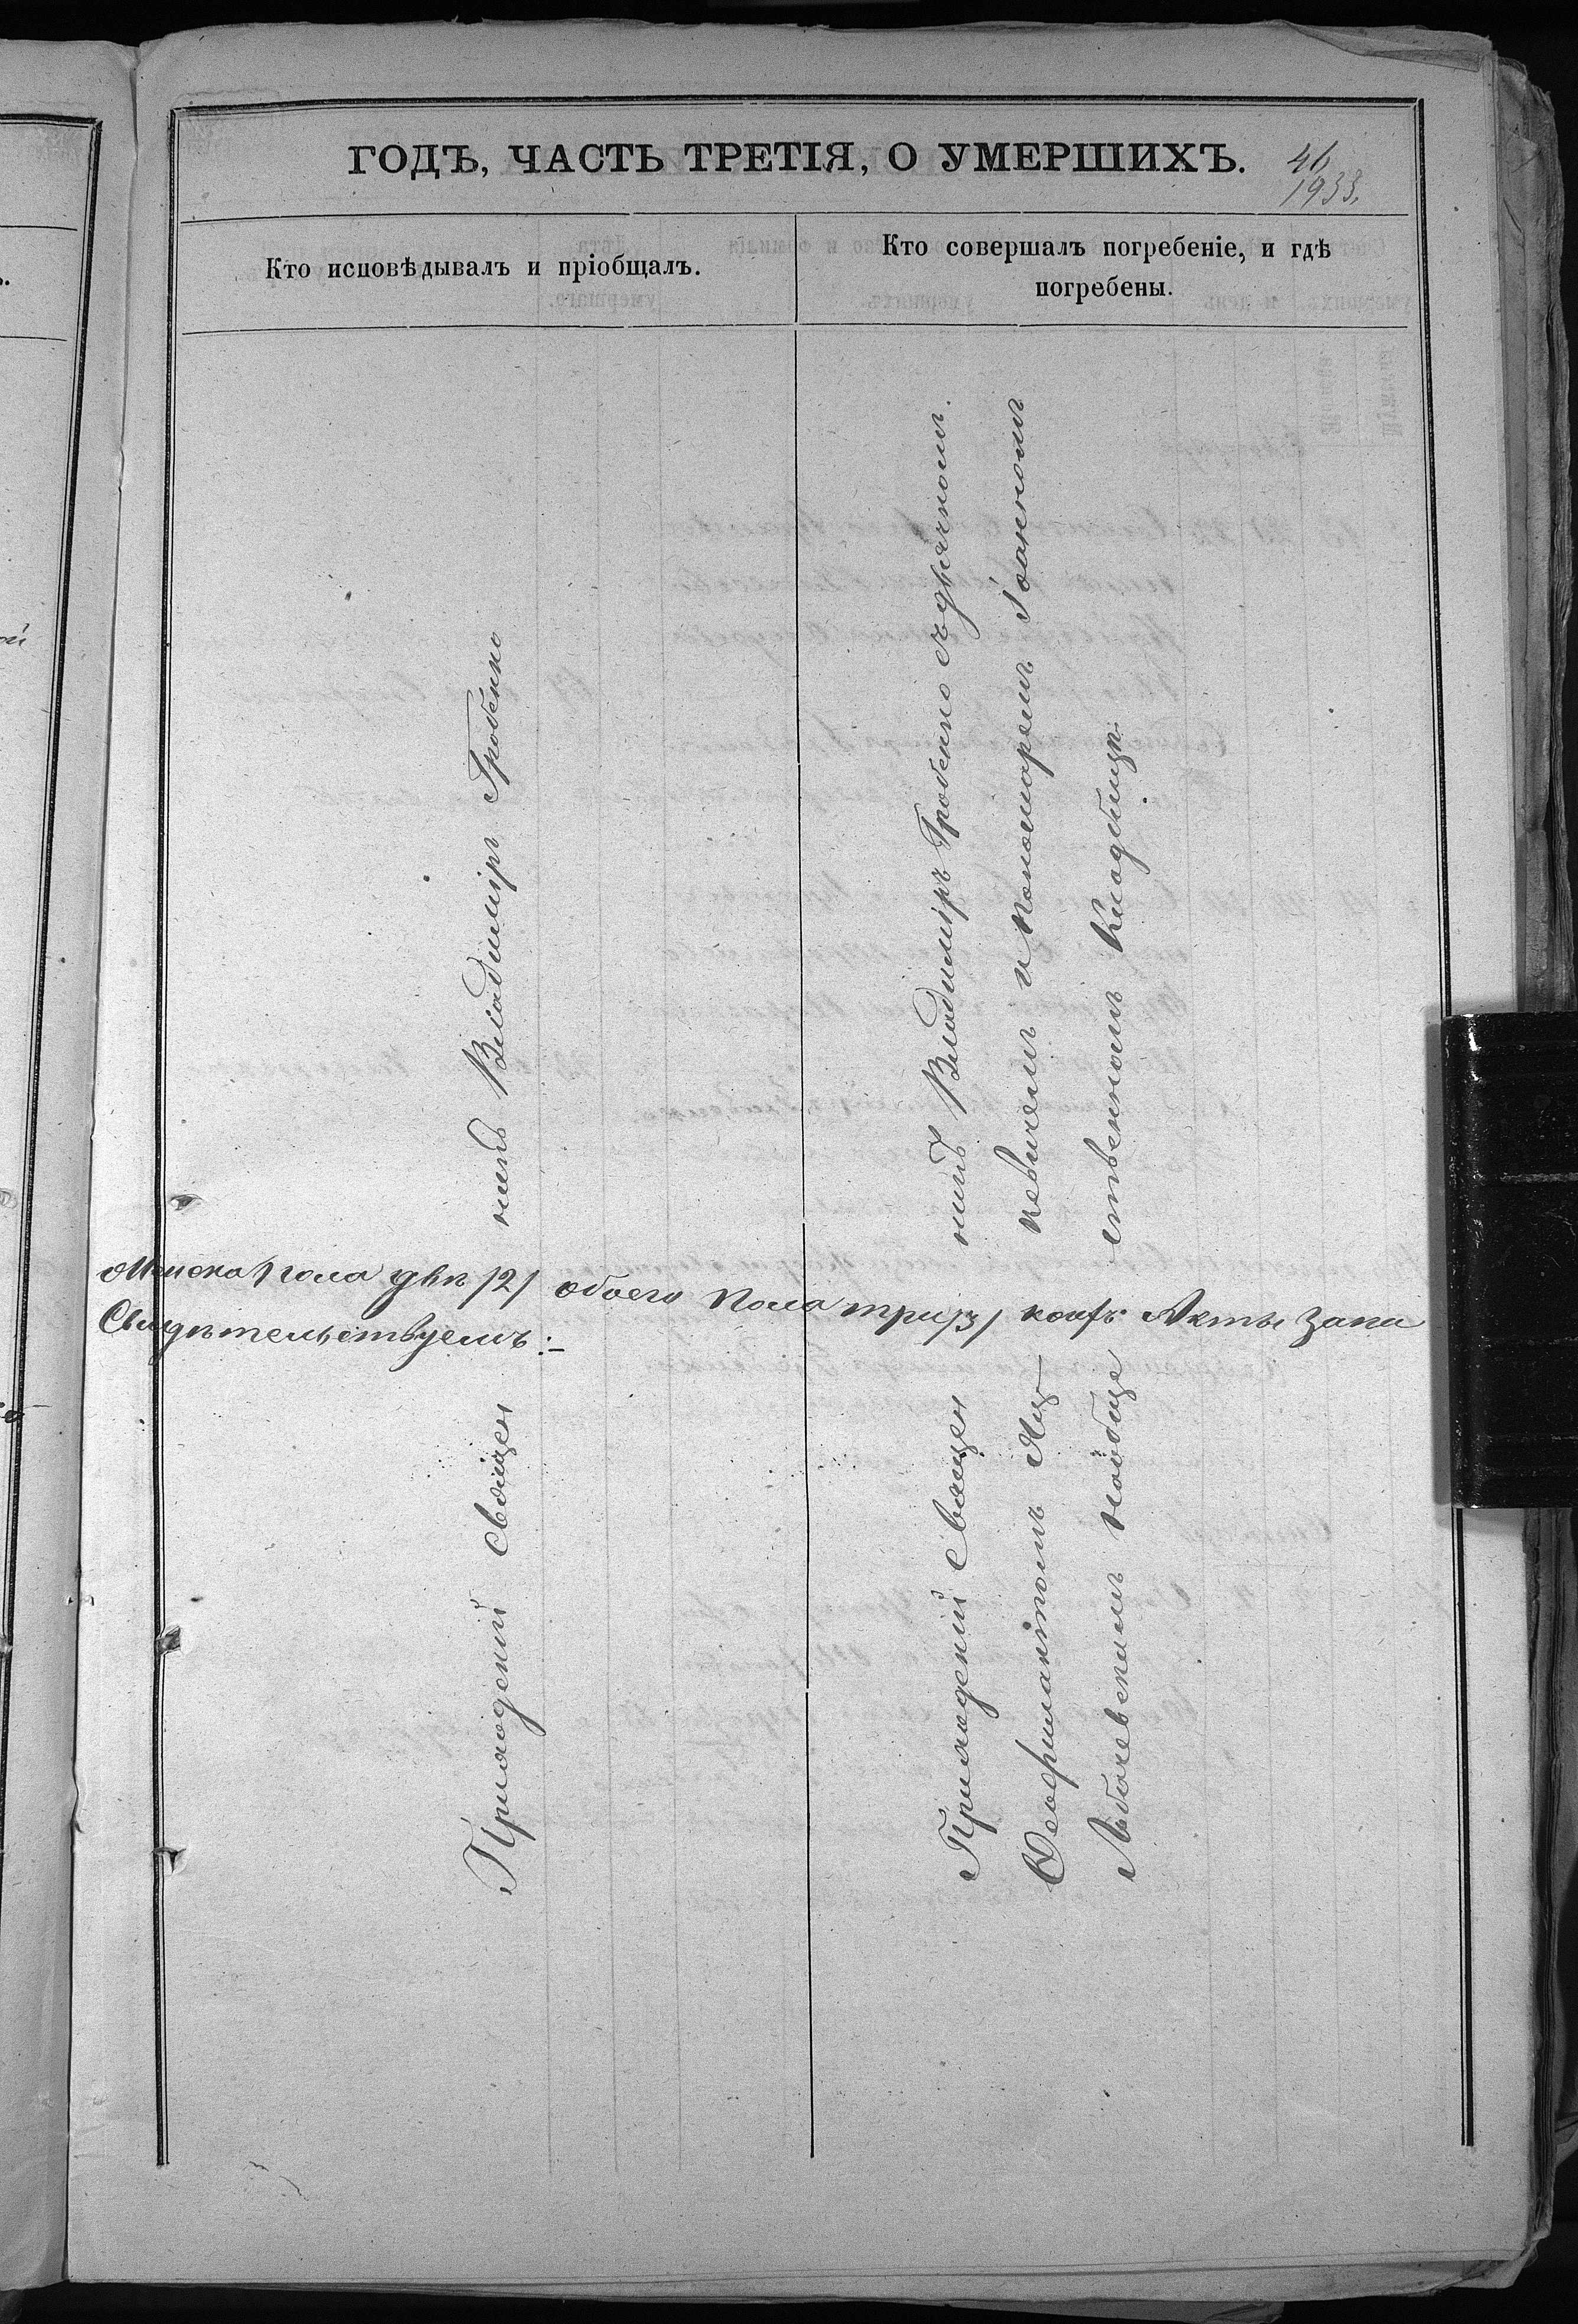 ГОДЪ, ЧАСТЬ ТРЕТІЯ, О УМЕРШИХЪ.
46
1933.
Кто исповѣдывалъ и пріобщалъ.
Кто совершалъ погребеніе, и гдѣ
погребены.
Приходскій Священ
никъ Владиміръ Гробенко
Приходскій Священ
никъ Владиміръ Гробенко съ дьячкомъ
Ѳеофилактомъ
и Пономаремъ Іоанномъ
ственномъ Кладбищѣ.
пола двѣ /2/ обоего пола три /3/ Акты запи
Свидѣтельствуемъ: